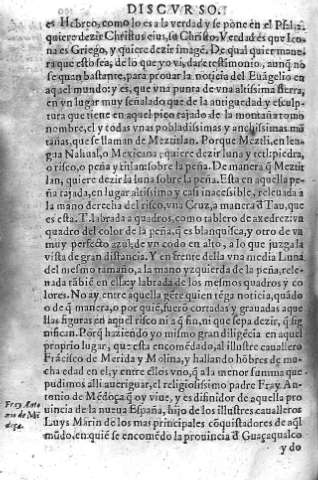 DISCVRSO.
es Hebreo, como lo es a la verdad y se pone en el Psal.2.
quiere dezir Christus eius, su Christo. Verdad es que Ico-
na es Griego, y quiere dezir imagẽ. De qual quier mane
ra que esto sea, de lo que yo vi, dare testimonio, aunq̃ no
se quan bastante, para prouar la noticia del Euãgelio en
aquel mundo: y es, que vna punta de vna altissima sierra,
en vn lugar muy señalado que de la antiguedad y esculp-
tura que tiene en aquel pico rajado de la montaña tomo
nombre, el y todas vnas pobladissimas y anchissimas mõ
tañas, que se llaman de Meztitlan. Porque Meztli, en len
gua Nahual, o Mexicana, quiere dezir luna y tetl: piedra,
o risco, o peña y titlan: sobre la peña. De manera q̃ Meztit
lan, quiere dezir la luna sobre la peña. Esta en aquella pe-
ña rajada, en lugar altissimo y casi inacessible, releuada a
la mano derecha del risco, vna Cruz, a manera d̃ Tau, que
es esta T. labrada a quadros, como tablero de axedrez: vn
quadro del color de la peña, q̃ es blanquisca, y otro de vn
muy perfecto azul, de vn codo en alto, a lo que juzga la
vista de gran distancia. Y en frente della vna media Luna
del mesmo tamaño, a la mano yzquierda de la peña, rele-
uada tãbiẽ en ella: y labrada de los mesmos quadros y co
lores. No ay entre aquella gẽte quien tẽga noticia, quãdo
o de q̃ manera, o por quiẽ, fuerõ cortadas y grauadas aque
llas figuras en aquel risco ni a q̃ fin, ni que sepa dezir, q̃ sig
nifican. Porq̃ haziendo yo mismo gran diligẽcia en aquel
proprio lugar, que esta encomẽdado, al illustre cauallero
Frãcisco de Merida y Molina, y hallando hõbres de mu-
cha edad en el, y entre ellos vno, q̃ a la menor summa que
pudimos alli aueriguar, el religiosissimo padre Fray. An-
tonio de Mẽdoça q̃ oy viue, y es difinidor de aquella pro
uincia de la nueua España, hijo de los illustres caualleros
Luys Marin de los mas principales cõquistadores de aq̃l
mũdo, en quiẽ se encomẽdo la prouincia d̃ Guaçaqualco
y do
Fray Anto
nio de Mẽ
doça.